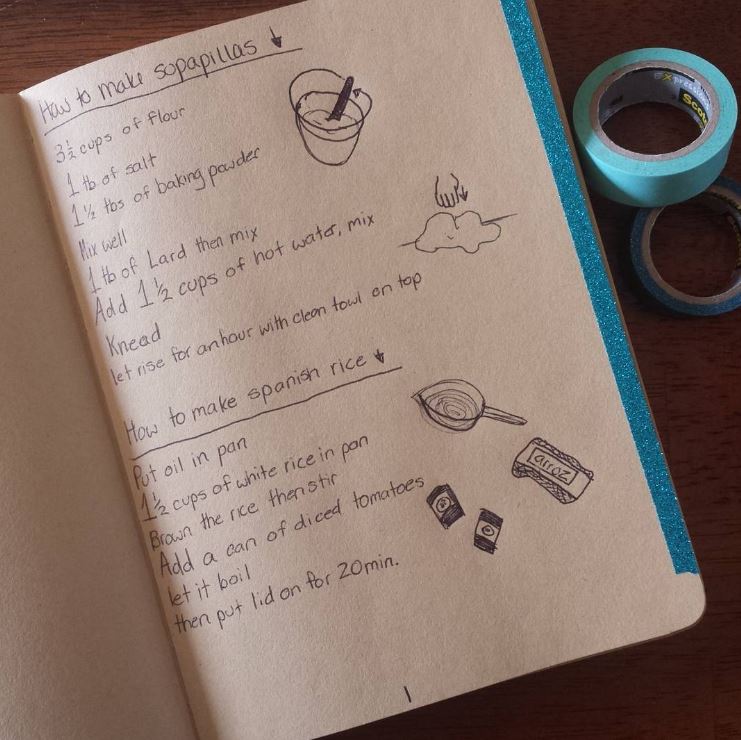 How to make sopapillas ↓
3½ cups of flour
1 tb of salt
1½ tbs of baking powder
Mix well
1 tb of Lard then mix
Add 1½ cups of hot water, mix
Knead
let rise for an hour with clean towl on top
How to make spanish rice ↓
Put oil in pan
1½ cups of white rice in pan
Brown the rice then stir
Add a can of diced tomatoes
let it boil
then put lid on for 20 min.
arroz
1
Expressions
Scot